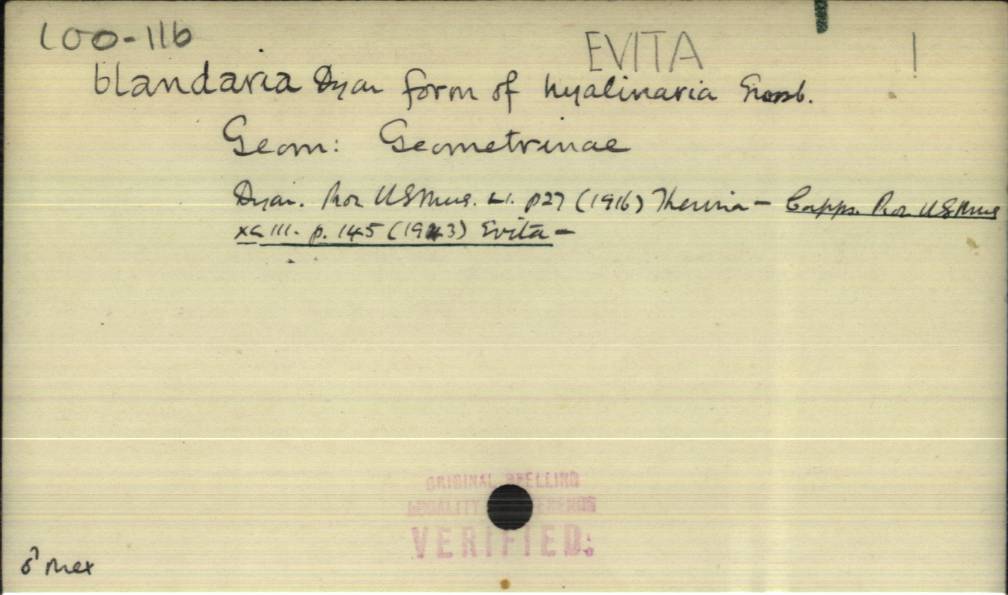 100-116
EVITA !
blandaria Dyar form of hyalinaria Grossb.
Geom: Geometrinae
Dyar. Proc USMus. LI. p27 (1916) Therina - Capps. Proc USMus
XCIII. p. 145 (1943) Evita -
ORIGINAL SPELLING
LOCALITY REFERENCE
VERIFIED:
♂ Mex